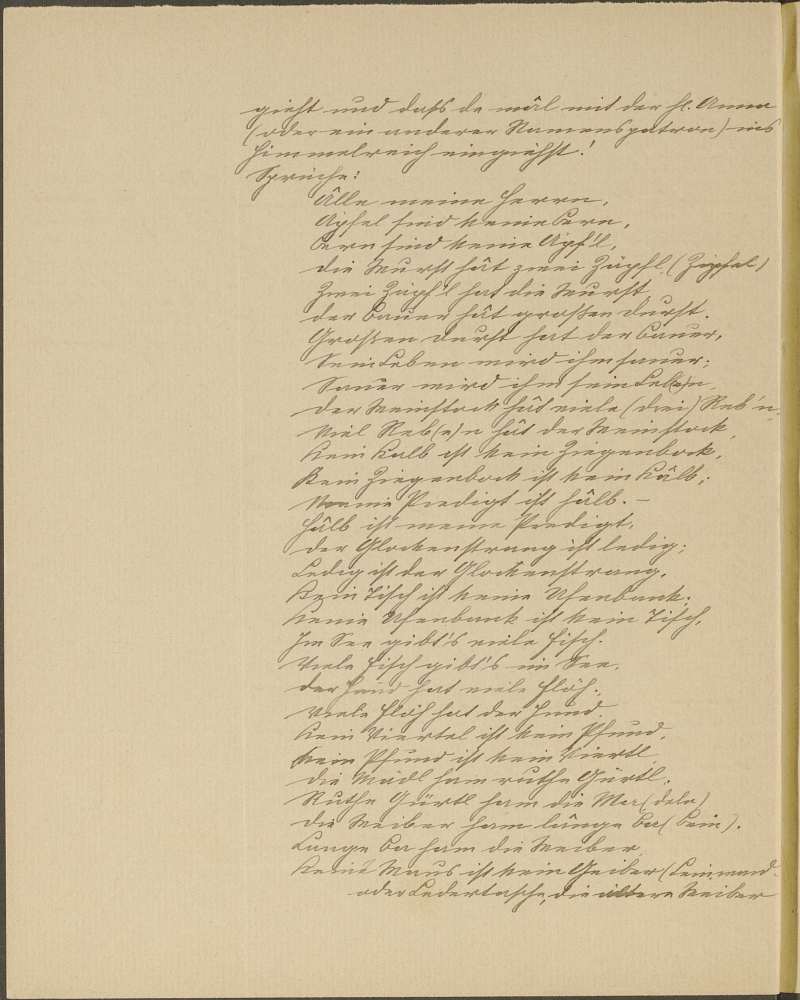 gieht und daß de mâl mit der hl. Anna
(oder ein anderer Namenspatron) ins
Himmelreich eingiehst!
Sprüche:
Âlle meine Herrn,
Äpfel sind keine Bern,
Bern sind keine Äpf'l,
die Wurst hât zwei Zäpfl (Zipfel)
Zwei Zäpf'l hat die Wurst
der Bauer hât großen Durst.
Großen Durst hat der Bauer,
Sein Leben wird ihm sauer;
Sauer wird ihm sein Leb(e)n,
der Weinstock hât viele (drei) Reb'n,
Viel Reb(e)n hât der Weinstock,
Kein Kalb ist kein Ziegenbock,
Kein Ziegenbock ist kein Kâlb;
Meine Predigt ist hâlb. —
Hâlb ist meine Predigt,
der Glockenstrang ist ledig;
Ledig ist der Glockenstrang,
Kein Tisch ist keine Ofenbank;
Keine Ofenbank ist kein Tisch,
Im See gibt's viele Fisch.
Viele Fisch gibt's im See,
der Hund hat viele Flöh.
Viele Flöh hat der Hund,
Kein Viertel ist kein Pfund,
Kein Pfund ist kein Viertl
die Mädl ham ruthe Gürtl,
Ruthe Gürtl ham die Ma(deln)
die Weiber ham lange Ba(Bein).
Lange Ba ham die Weiber,
Keine Maus ist kein Geiber (Leinwand-
oder Ledertasche, die ältere Weiber